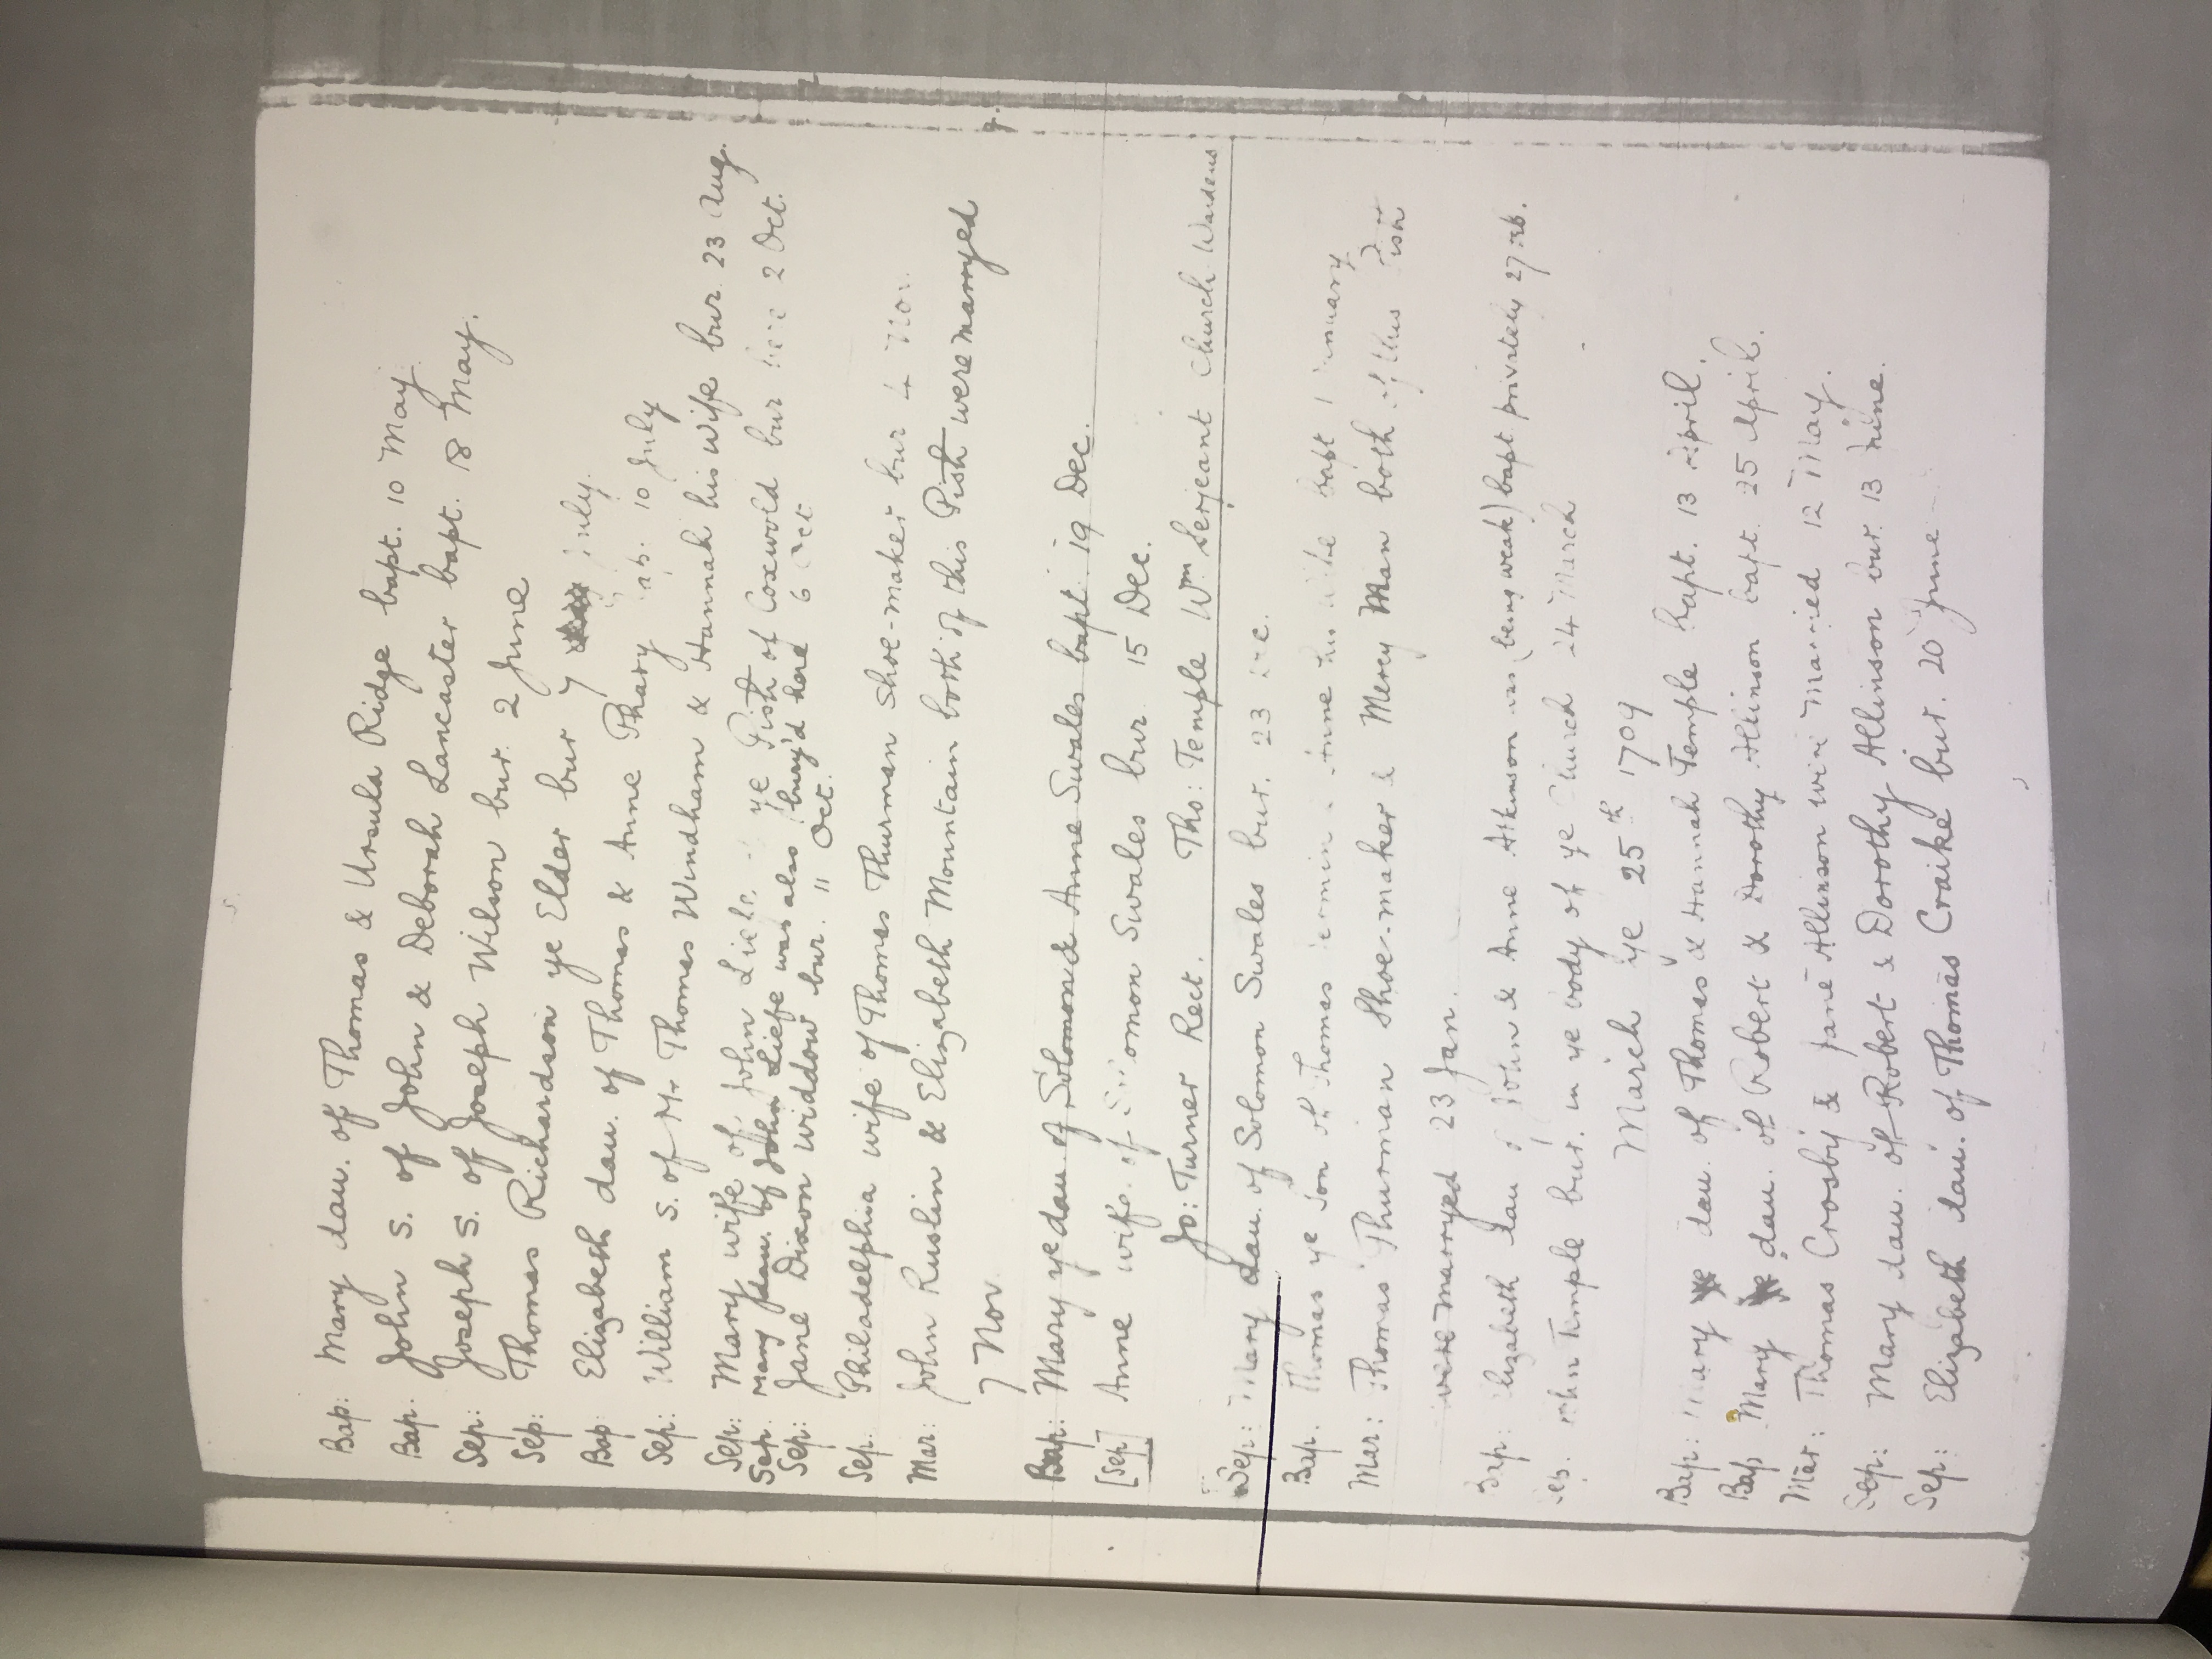 Bap: Mary dau. of Thomas & Ursula Ridge bapt. 10 May
Bap. John S. of John & Deborah Lancaster bapt. 18 May.
Sep: Joseph S. of Joseph Wilson bur. 2 June
Sep: Thomas Richardson ye Elder bur 7 July.
Bap: Elizabeth dau. of Thomas & Anne Phary bap. 10 July
Sep: William S. of Mr Thomas Windham & Hannah his wife bur. 23 Aug.
Sep: Mary wife of John Liefe of ye Pish of Coxwold bur here 2 Oct.
Sep. Mary dau. of John Liefe was also bury'd here 6 Oct
Sep: Jane Dixon widdow bur. 11 Oct.
Sep. Philadelphia wife of Thomas Thurman Shoe-maker bur 4 Nov.
Mar: John Ruslin & Elizabeth Mountain both of this Pish were marryed
7 Nov.
Bap: Mary ye dau of Solomon & Anne Swales bapt. 19 Dec.
[Sep] Anne wife of Solomon Swales bur 15 Dec.
Jo: Turner Rect. Tho: Temple Wm Serjeant Church Wardens
Sep: Mary dau. of Solomon Swales bur. 23 Dec.
Bap. Thomas ye Son of Thomas & Anne his wife bapt 1 January
Mar: Thomas Thurman Shoe-maker & Mercy Man both of this Pish
were marryed 23 Jan.
Bap: Elizabeth dau of John & Anne Atkinson was (being weak) bapt privately 27 Feb.
Sep. John Temple bur. in ye body of ye Church 24 March
March ye 25th 1709
Bap: Mary dau. of Thomas & Hannah Temple bapt. 13 April.
Bap Mary dau. of Robert & Dorothy Allinson bapt. 25 April.
Mar: Thomas Crosby & Jane Allinson were married 12 May.
Sep: Mary dau. of Robert & Dorothy Allinson bur. 13 June.
Sep: Elizabeth dau. of Thomas Craike bur. 20 June